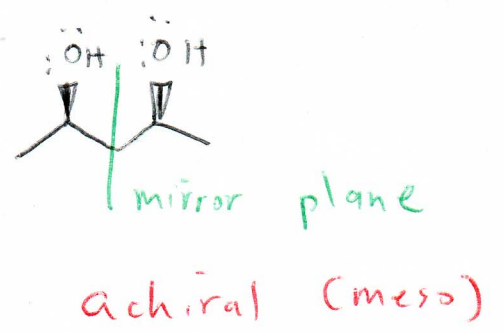 :ÖH :ÖH
mirror plane
achiral (meso)